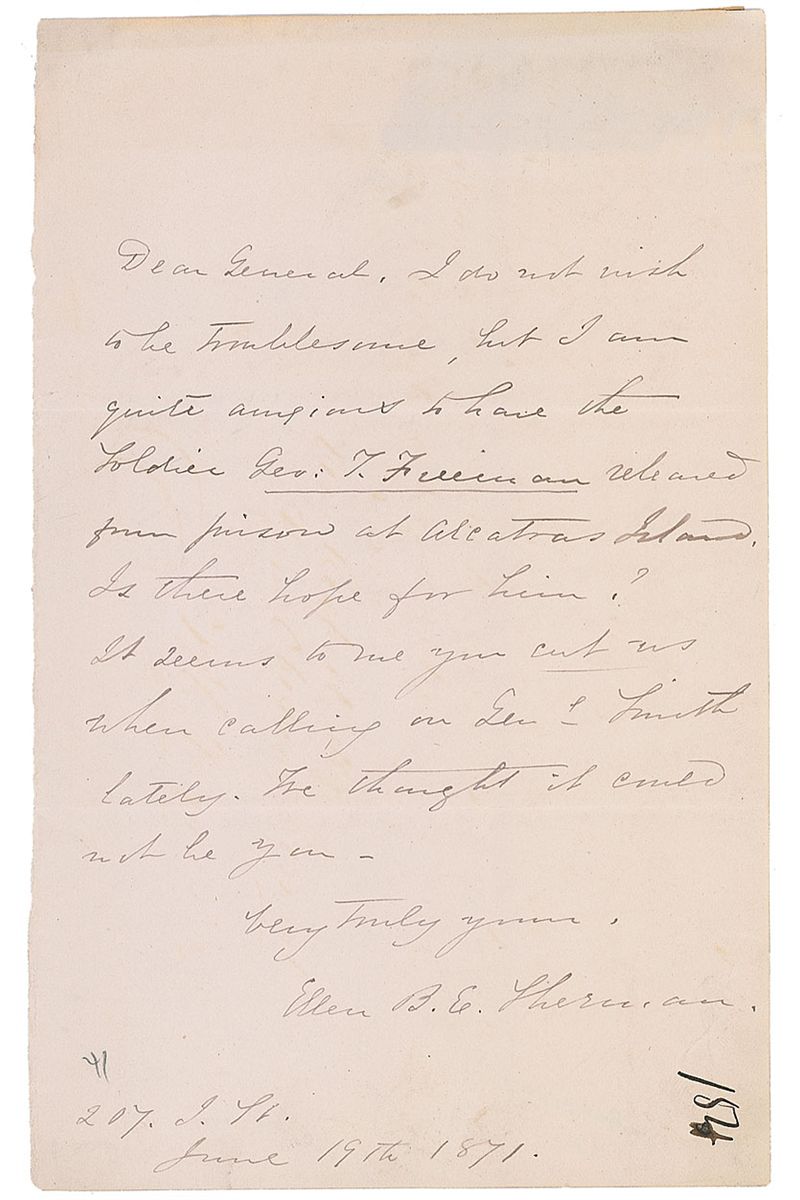 Dear General. I do not wish
to be troublesome, but I am
quite anxious to have the
Soldier Geo: T. Freeman released
from prison at Alcatras Island.
Is there hope for him?
It seems to me you cut us
when calling on Genl Smith
lately. We thought it could
not be you -
Very truly yours.
Ellen B. E. Sherman.
41
207. I. St.
June 19th 1871.
184